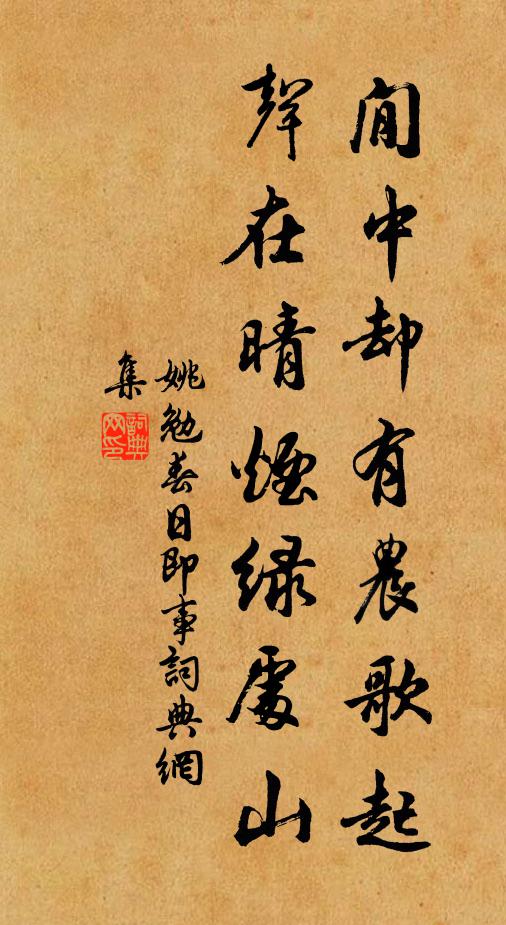 閒中却有農歌起
聲在晴煙綠處山
姚勉春日即事詞典網
集
詞典網印